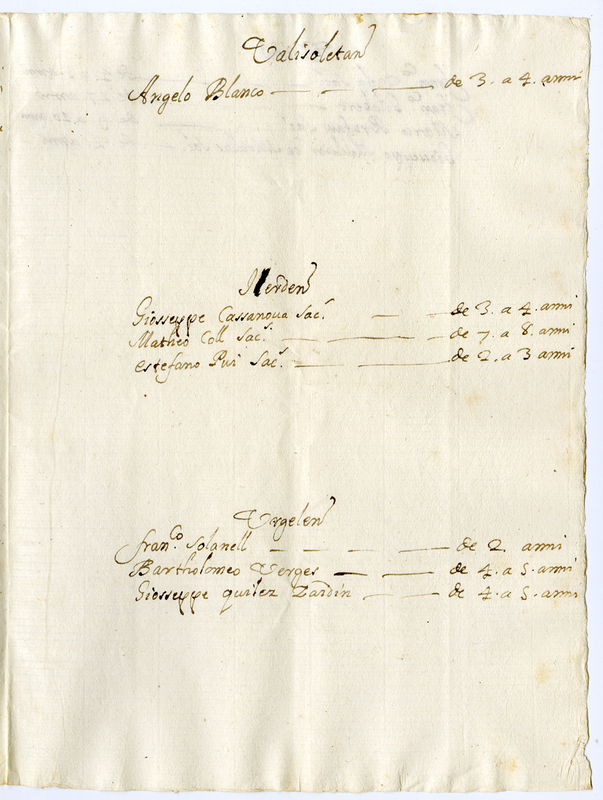 Valisoletan
Angelo Blanco — — — — de 3. a 4. anni
Ilerden
Giosseppe Cassanova Sac.s — — de 3. a 4. anni
Matheo Coll Sac.s — — — de 7. a 8. anni
Estefano Pui Sac.s — — de 2. a 3 anni
Vrgelen
fran.co Solanell — — — — de 2 anni
Bartholomeo Verges — — de 4. a 5. anni
Giosseppe quilez Zardin — — de 4. a 5. anni